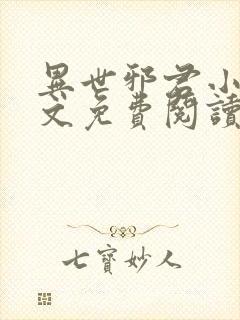 異世邪君小
文免費閱讀
七寶妙人